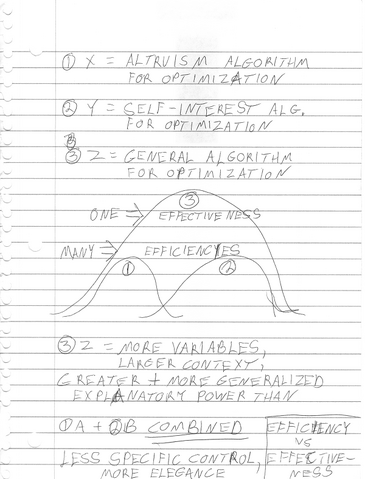 ① X = ALTRUISM ALGORITHM
FOR OPTIMIZATION
② Y = SELF-INTEREST ALG.
FOR OPTIMIZATION
③ Z = GENERAL ALGORITHM
FOR OPTIMIZATION
③
ONE ⇒ EFFECTIVENESS
MANY ⇒ EFFICIENCYES
① ②
③ Z = MORE VARIABLES,
LARGER CONTEXT,
GREATER + MORE GENERALIZED
EXPLANATORY POWER THAN
①A + ②B COMBINED
LESS SPECIFIC CONTROL,
MORE ELEGANCE
EFFICIENCY
VS
EFFECTIVE-
NESS